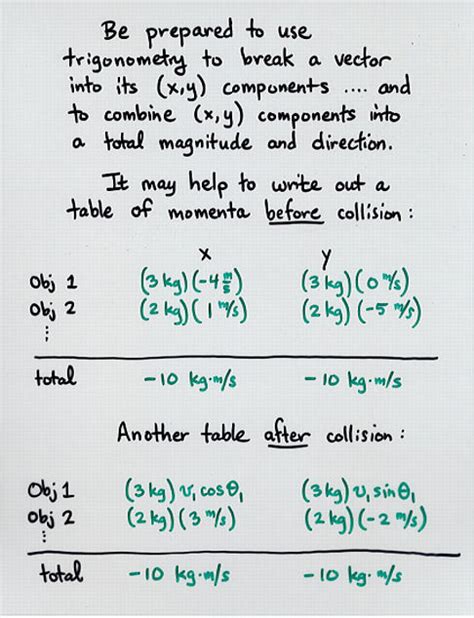 Be prepared to use
trigonometry to break a vector
into its (x,y) components .... and
to combine (x,y) components into
a total magnitude and direction.
It may help to write out a
table of momenta before collision :
x y
Obj 1 (3 kg)(-4 m/s) (3 kg)(0 m/s)
Obj 2 (2 kg)(1 m/s) (2 kg)(-5 m/s)
⋮
total -10 kg·m/s -10 kg·m/s
Another table after collision :
Obj 1 (3 kg) v₁ cos θ₁ (3 kg) v₁ sin θ₁
Obj 2 (2 kg)(3 m/s) (2 kg)(-2 m/s)
⋮
total -10 kg·m/s -10 kg·m/s